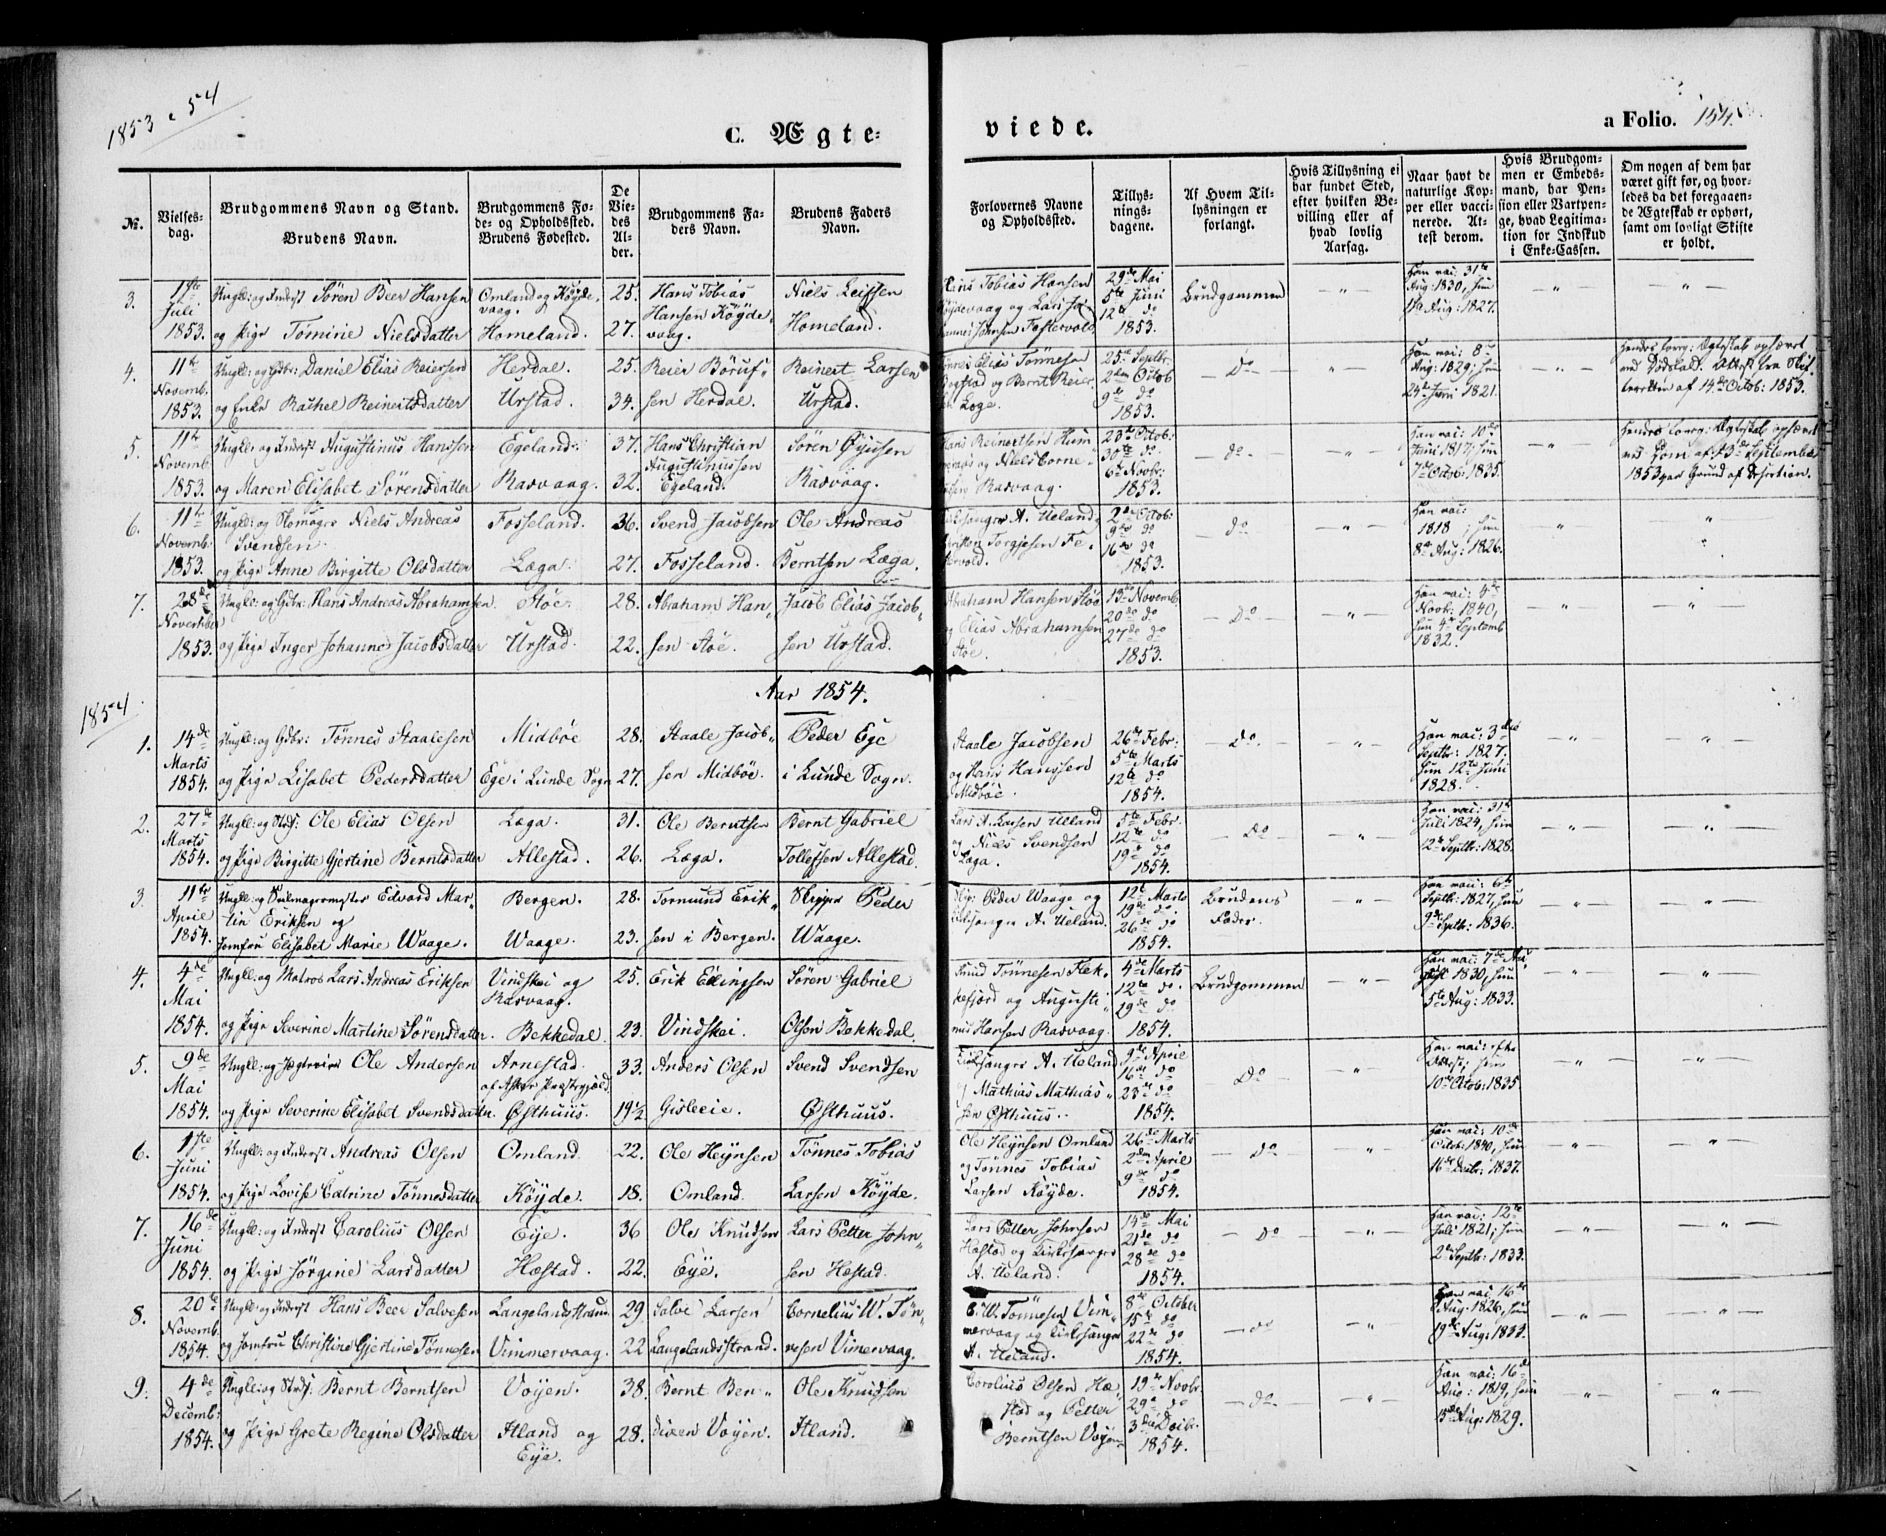 1853 c 54
C. Ægte=
viede.
a Folio. 154.
№.
Vielses-
dag.
Brudgommens Navn og Stand.
Brudens Navn.
Brudgommens Fø-
de- og Opholdssted.
Brudens Fødested.
De
Vie-
des
Al-
der.
Brudgommens Fa-
ders Navn.
Brudens Faders
Navn.
Forlovernes Navne
og Opholdssted.
Tillys-
nings-
dagene.
Af Hvem Til-
lysningen er
forlangt.
Hvis Tillysning ei
har fundet Sted,
efter hvilken Be-
villing eller af
hvad lovlig
Aarsag.
Naar havt de
naturlige Kop-
per eller vacci-
nerede. At-
test derom.
Hvis Brudgom-
men er Embeds-
mand, har Pen-
sion eller Vartpen-
ge, hvad Legitima-
tion for Indskud
i Enke-Cassen.
Om nogen af dem har
været gift før, og hvor-
ledes da det foregaaen-
de Ægteskab er ophørt,
samt om lovligt Skifte
er holdt.
3.
1ste
Juli
1853.
Ungk: og Inderst Søren Beer Hansen
og Pige Tomine Nielsdatter
Omland og Köyde-
vaag.
Homeland.
25.
27.
Hans Tobias
Hansen Köyde-
vaag.
Niels Leissen
Homeland.
Hans Tobias Hansen
Köydevaag og Lars Jo-
hannes Johnsen Festervold
29de Mai
5te Juni
12te do
1853.
Brudgommen
Han vai: 31te
Aug: 1830, hun
Aug: 1827.
4.
11te
Novemb.
1853.
Ungk: og Gdbr: Daniel Elias Reiersen
og Enke Rachel Reinertsdatter
Herdal.
Urstad.
25.
34.
Reier Böruf-
sen Herdal.
Reinert Larsen
Urstad.
Tönnes Elias Tönnesen
og Bernt Reier-
sen Loge.
25de Septbr.
2den Octob
9de do
1853.
Do
Han vai: 8de
Aug: 1829, hun
24de Juni 1821.
Hendes forrg: Ægteskab ophævet
ved Dødsfald. Attest fra Skif-
teretten af 14de Octob: 1853.
5.
11te
Novemb.
1853.
Ungk: og Inderst Augustinus Hanssen
og Maren Elisabet Sörensdatter
Egeland.
Rasvaag.
37.
32.
Hans Christian
Augustinussen
Egeland.
Sören Öyusen
Rasvaag.
Hans Reinertsen Hum-
og Niels Corne-
Rasvaag.
23de Octob:
30te do
6te Novbr:
1853.
do
Han vai: 10de
Juni 1817, hun
7de Octob: 1835.
Hendes forrg: Ægteskab ophævet
ved Dom af 13de September
1853 paa Grund af Desertion.
6.
11te
Novemb.
1853.
Ungk: og Skomager Niels Andreas
Svendsen
og Pige Anne Birgitte Olsdatter
Fosseland.
Læga.
36.
27.
Svend Jacobsen
Fosseland.
Ole Andreas
Berntsen Læga.
Kirkesanger A. Ueland,
Torgjesen Fe-
2de Octob:
9de do
16de do
1853.
do
Han vai:
1818, hun
8de Aug: 1826.
7.
28de
November
1853.
Ungk: og Gdbr: Hans Andreas Abrahamsen.
og Pige Inger Johanne Jacobsdatter
Støe.
Urstad.
28.
22.
Abraham Han-
sen Støe.
Jacob Elias Jacob-
sen Urstad.
Abraham Hansen Støe
og Elias Abrahamsen
Støe.
13de Novemb
20de do
27de do
1853.
Do
Han vai: 4de
Novbr: 1840,
hun 4de Septemb
1832.
1854
Aar 1854.
1.
14de
Marts
1854.
Ungk: og Gdbr: Tönnes Staalesen
og Pige Lisabet Pedersdatter
Midböe
Ege i Lunde Sogn
28.
27.
Staale Jacob-
sen Midböe.
Peder Ege
i Lunde Sogn.
Staale Jacobsen
og Hans Hanssen
Midböe.
26de Febr:
5te Marts
12te do
1854.
Do.
Han vai: 3die
Septbr: 1827.
Hun 12te Juni
1828.
2.
27de
Marts
1854.
Ungk: og Strds: Ole Elias Olsen
og Pige Birgitte Gjertine Berntsdatter
Læga.
Allestad.
31.
26.
Ole Berntsen
Læga.
Bernt Gabriel
Tollefssen Allestad
Lars A. Larsen Ueland
og Niels Svendsen
Læga.
5te Febr.
12te do
19de do
1854.
Do
Han vai: 31te
Juli 1824, hun
12te Septbr: 1828.
3.
11te
April
1854.
Ungk: og Seilmagermester Edvard Mar-
tin Eriksen og
Jomfru Elisabet Marie Waage.
Bergen.
Waage.
28.
23.
Tormund Erik-
sen i Bergen.
Skipper Peder
Waage.
Peder Waage og
Kirkesanger A. Ueland.
12te Marts
19de do
26de do
1854.
Brudens
Fader.
Han vai: 6te
Septbr: 1827, hun
9de Septbr: 1836.
4.
4de
Mai
1854.
Ungk: og Matros Lars Andreas Eriksen
og Pige Severine Martine Sörensdatter.
Vindskei og
Rasvaag.
Bekkedal.
25.
23.
Erik Edingsen
Vindskei.
Sören Gabriel
Olsen Bekkedal.
Knud Tönnesen Flek-
kefjord og Augusti-
nus Hansen Rasvaag.
4de Marts
12te do.
19de do
1854.
Brudgommen
Han vai: 7de Au-
gust 1830, hun
5te Aug: 1833.
5.
9de
Mai
1854.
Ungk: og Ole Andersen
og Pige Severine Elisabet Svendsdatter.
Arnestad
af Asker Præstegjæld.
Östhuus.
33.
19½
Anders Olsen
Gisleeie.
Svend Svendsen
Östhuus.
Kirkesanger A. Ueland
og Mathias Mathias-
sen Östhuus.
9de April
16de do
23de do
1854.
Do
Han vai: efter
Attest, hun
10de Octob: 1835
6.
1ste
Juni
1854.
Ungk: og Inderst Andreas Olsen
og Pige Lovise Catrine Tönnesdatter
Omland
Köyde.
22.
18.
Ole Heynsen
Omland.
Tönnes Tobias
Larsen Köyde.
Ole Heynsen Omland
og Tönnes Tobias
Larsen Köyde.
26de Marts
2den April
9de do
1854.
Do
Han vai: 10de
Octob: 1840, hun
16de Decbr: 1837.
7.
16de
Juni
1854.
Ungk: og Inderst Carolius Olsen
og Pige Jörgine Larsdatter
Eye.
Hæstad.
36
22.
Ole Knudsen
Eye.
Lars Petter John-
sen Hæstad.
Lars Petter Johnsen
Hæstad og Kirkesanger
A. Ueland.
14de Mai
21de do
28de do
1854.
Do
Han vai: 12te
Juli 1821, hun
2de Septbr: 1833.
8.
20de
Novemb.
1854.
Ungk: og Inderst Hans Beer Salvesen
og Jomfru Christine Gjertine Tönnesen
Langelandsstrand.
Vimmervaag.
29.
22
Salve Larsen
Langelandsstrand.
Cornelius W. Tön-
nesen Vimervaag.
C. W. Tönnesen Vim-
mervaag og Kirkesanger
A. Ueland.
8de October
15de do
22de do
1854.
do
Han vai: 16de
Aug: 1826, hun
19de Aug: 1833.
9.
4de
Decemb:
1854.
Ungk: og Strds: Bernt Berntsen
og Pige Grete Regine Olsdatter
Vöyen.
Itland og
Eye.
38.
28.
Bernt Ben-
dixen Vöyen.
Ole Knudsen
Itland.
Carolius Olsen Hæ-
stad og Petter
Berntsen Vöyen
19de Novbr
29de do
3die Decbr
1854.
do
Han vai: 16de
Aug: 1819, hun
15de Aug: 1829.